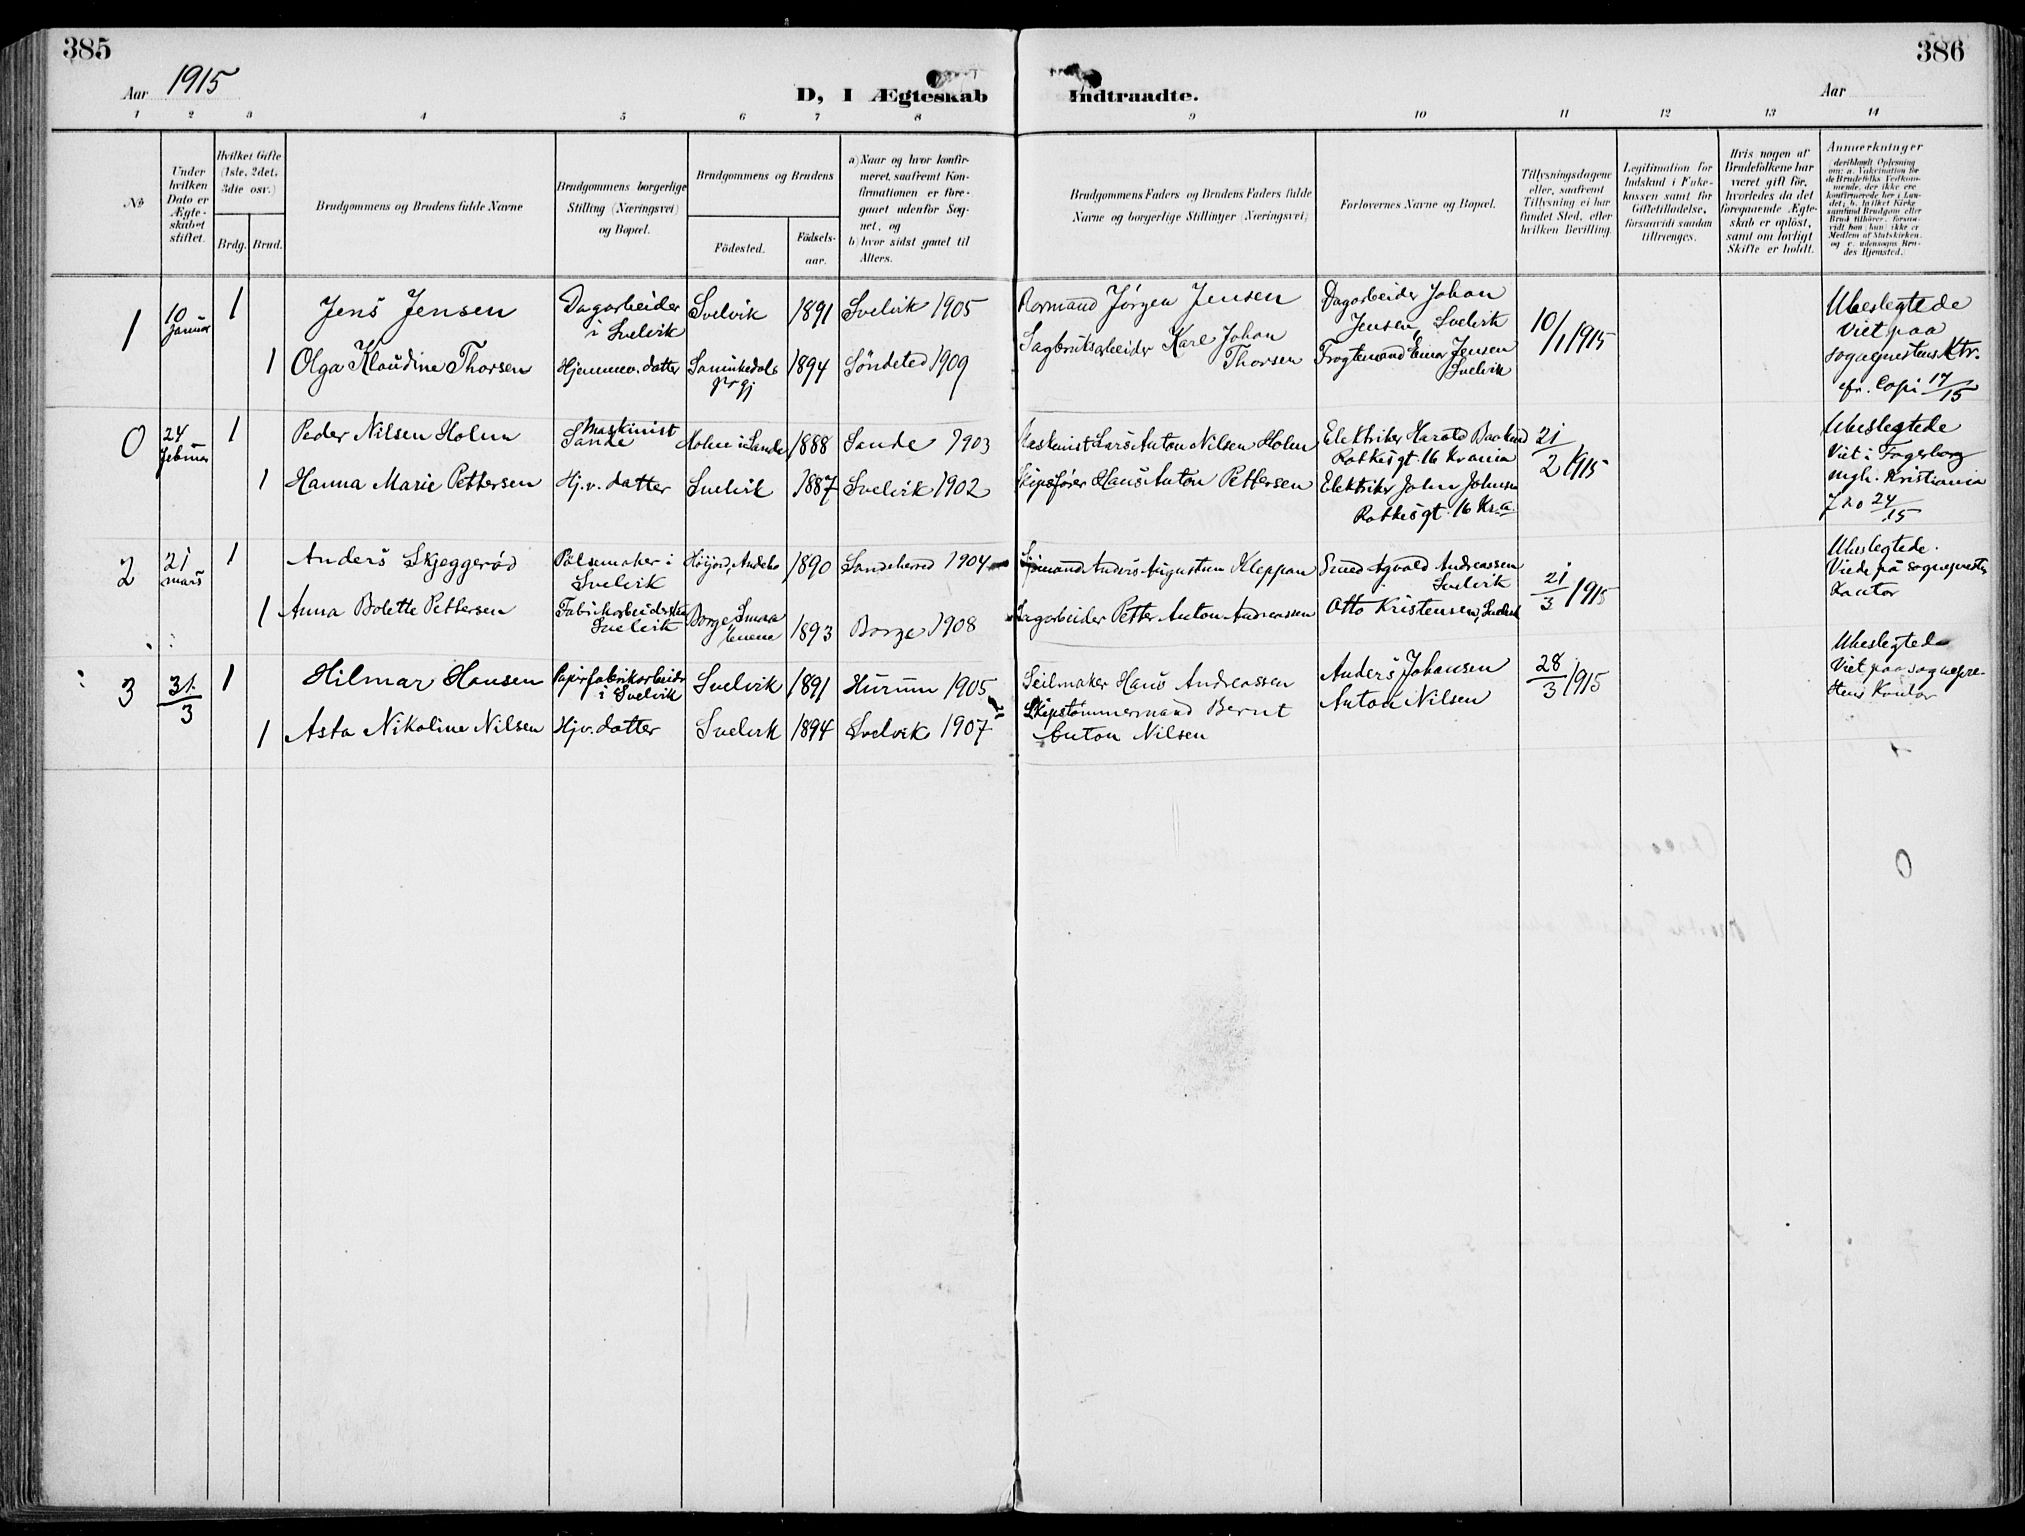 385
386
Aar 1915
D, I Ægteskab Indtraadte.
Aar
1 2 3 4 5 6 7 8 9 10 11 12 13 14
No
Under hvilken Dato er Ægteskabet stiftet.
Hvilket Gifte (1ste, 2det, 3die osv.)
Brdg. Brud.
Brudgommens og Brudens fulde Navne
Brudgommens borgerlige Stilling (Næringsvei) og Bopæl.
Brudgommens og Brudens
Födested.
Födselsaar.
a) Naar og hvor konfirmeret, saafremt Konfirmationen er foregaaet udenfor Sognet, og
b) hvor sidst gaaet til Alters.
Brudgommens Faders og Brudens Faders fulde Navne og borgerlige Stillinger (Næringsvei)
Forlovernes Navne og Bopæl.
Tillysningsdagene eller, saafremt Tillysning ei har fundet Sted, efter hvilken Bevilling.
Legitimation for Indskud i Enkekassen samt for Giftetilladelse, forsaavidt saadan tiltrænges.
Hvis nogen af Brudefolkene har været gift för, hvorledes da det foregaaende Ægteskab er oplöst, samt om lovligt Skifte er holdt.
Anmærkninger
1 10 Januar 1 Jens Jensen Dagarbeider i Svelvik Svelvik 1891 Svelvik 1905 Jørgen Jensen Dagarbeider Johan Jensen, Svelvik 10/1 1915 Ubeslegtede Viet paa sogneprestens Ktr. cfr. Copi 17/15
1 Olga Klaudine Thorsen Hjemmev. datter 1894 Søndeled 1909 Sagbruksarbeider Karl Johan Thorsen Einar Jensen Svelvik
0 24 Februar 1 Peder Nilsen Holm Maskinist Sande Holm i Sande 1888 Sande 1903 Maskinist Lars Anton Nilsen Holm Elektriker Harald 16 Krania 21/2 1915 Ubeslegtede Viet i Fagerborg mgh. Kristiania 24/15
1 Hanna Marie Pettersen Hj.v. datter Svelvik 1887 Svelvik 1902 Skipsfører Hans Anton Pettersen Elektriker John Johnsen 16 Kr.a.
2 21 mars 1 Anders Skjeggerød Pølsemaker i Svelvik Høijord, Andebu 1890 Sandeherred 1904 Sjømand Anders Augustsen Kleppan Smed Agvald Andreassen Svelvik 21/3 1915 Ubeslegtede. Viede på sogneprestens Kontor
1 Anna Bolette Pettersen Fabrikarbeiderske Svelvik Borge 1893 Borge 1908 Dagarbeider Petter Anton Andreassen Otto Kristensen, Svelvik
3 31/3 1 Hilmar Hansen Papirfabrikarbeider i Svelvik Svelvik 1891 Hurum 1905 Seilmaker Hans Andreassen Anders Johansen 28/3 1915 Ubeslegtede Viet paa sogneprestens Kontor
1 Asta Nikoline Nilsen Hjv. datter Svelvik 1894 Svelvik 1907 Skipstømmermand Bernt Anton Nilsen Anton Nilsen